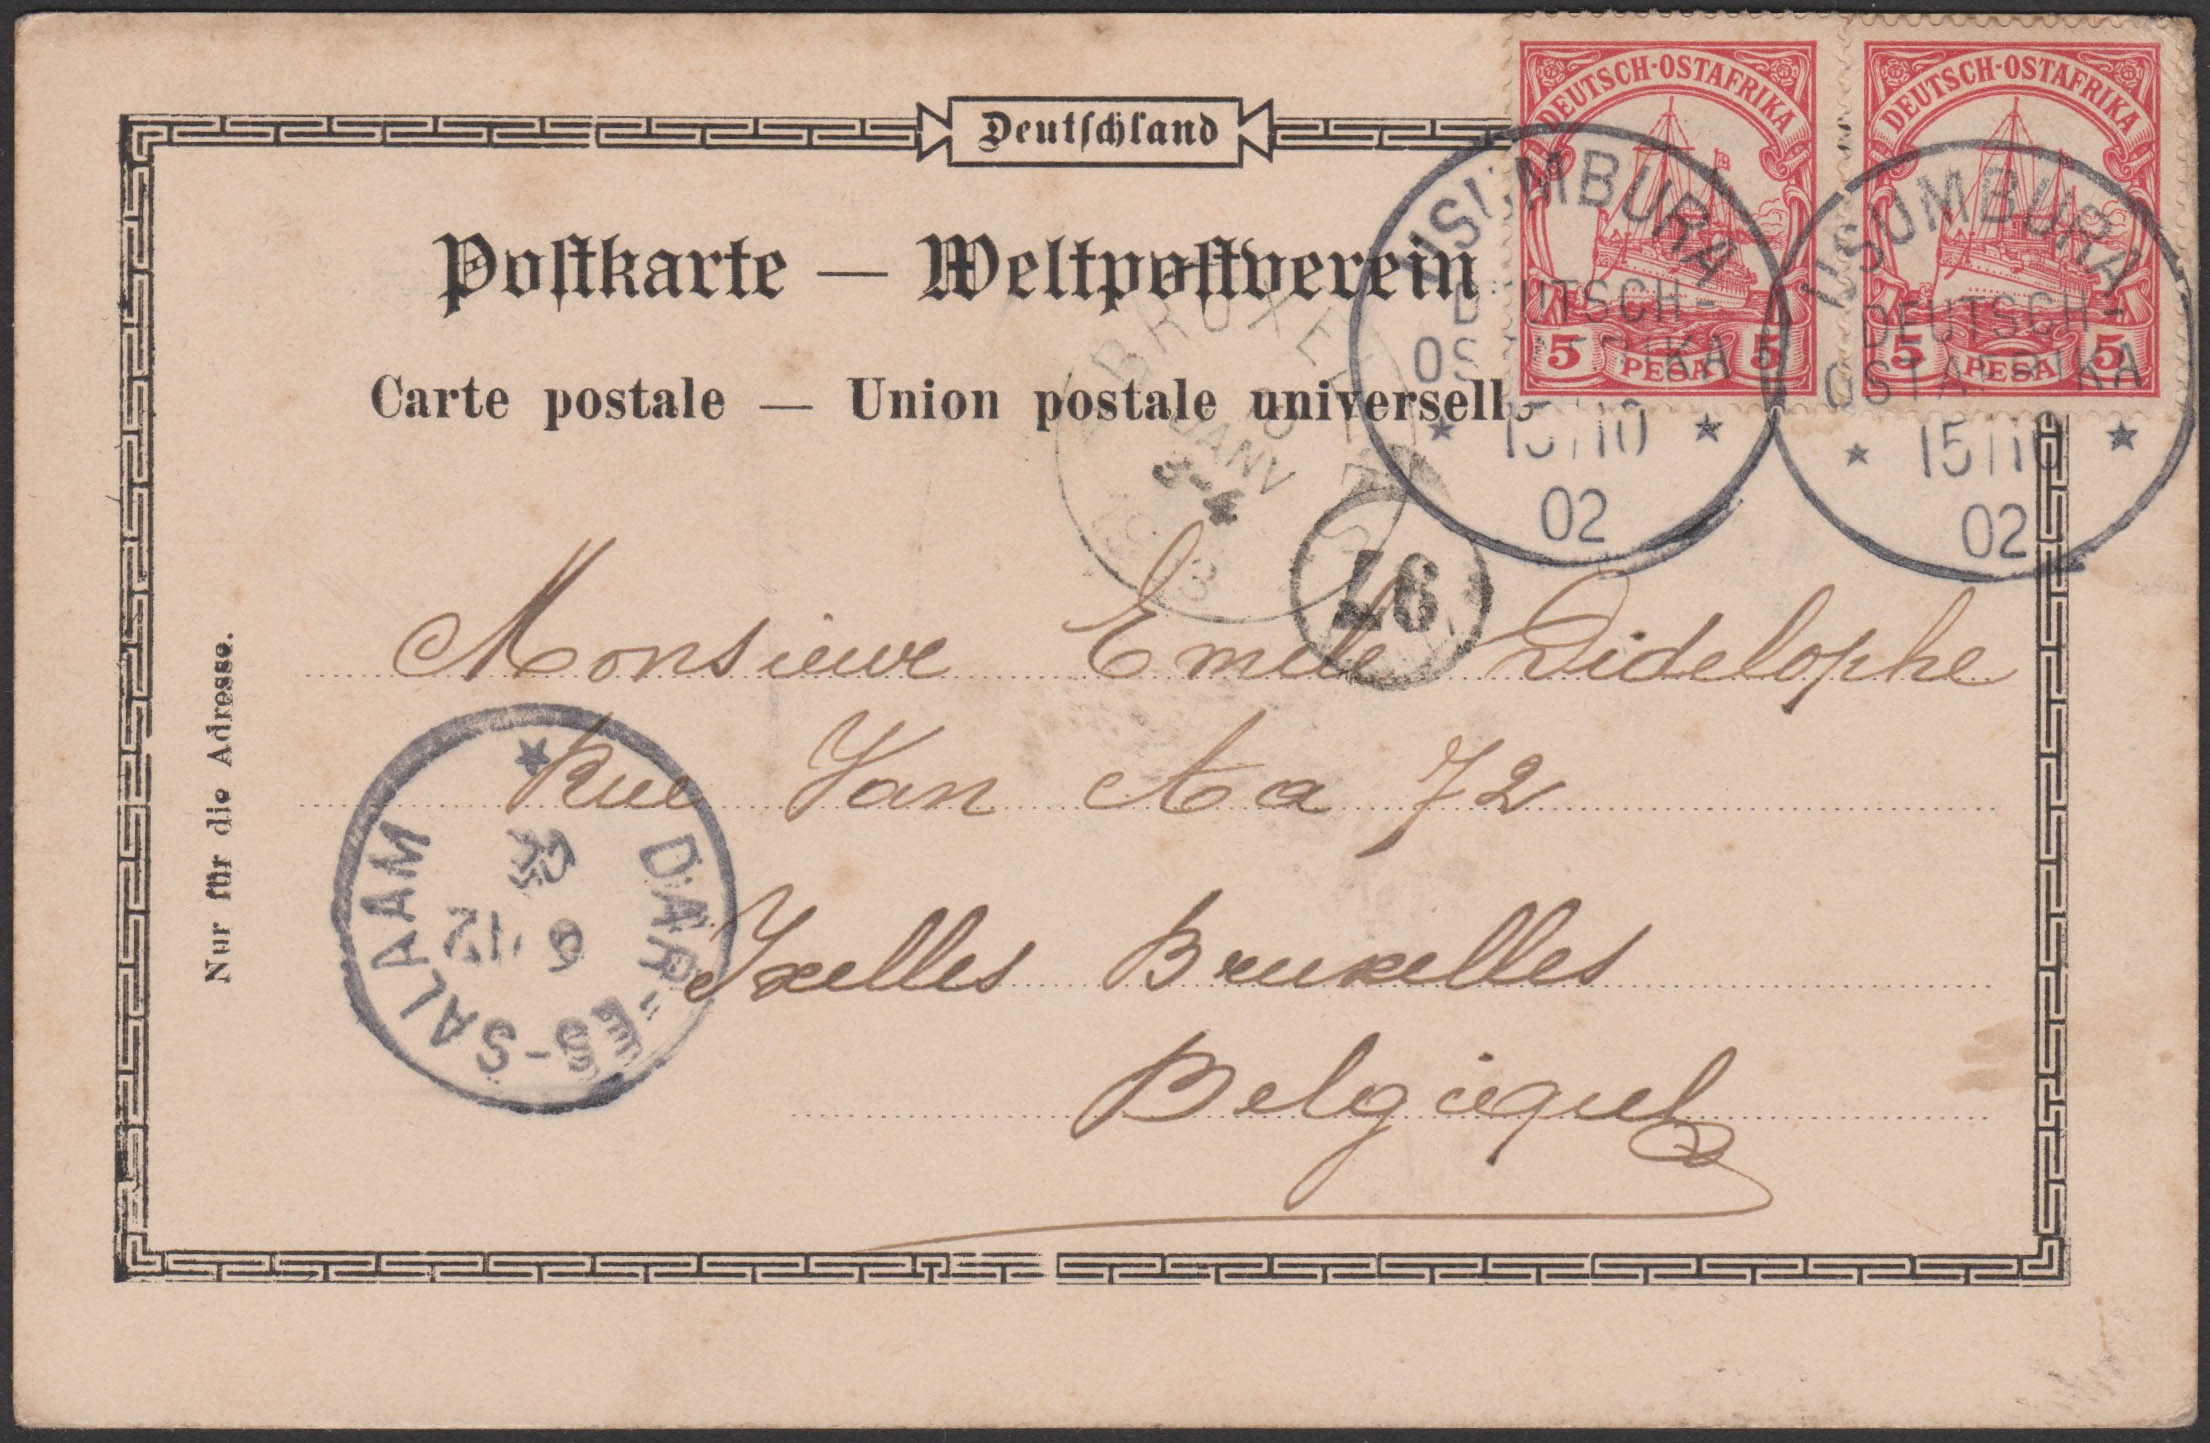 Deutschland
Postkarte — Weltpostverein
Carte postale — Union postale universelle
DEUTSCH-OSTAFRIKA
5 PESA 5
DEUTSCH-OSTAFRIKA
5 PESA 5
USUMBURA
DEUTSCH-
OSTAFRIKA
* 15/10 *
02
USUMBURA
DEUTSCH-
OSTAFRIKA
* 15/10 *
02
BRUXELLES
JANV
3-4
1903
97
Monsieur Emile Didelophe
Rue Van Aa 72
Ixelles Bruxelles
Belgique
DAR-ES-SALAAM
9 12
Nur für die Adresse.